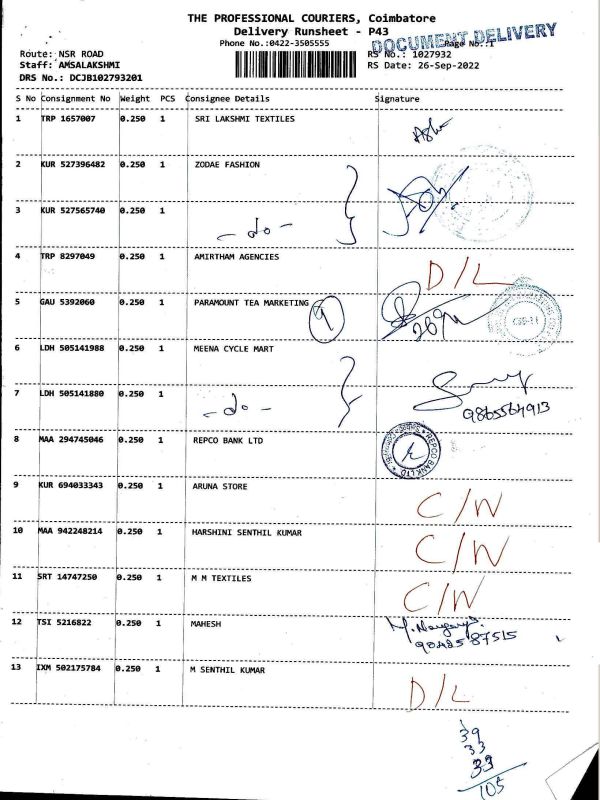 THE PROFESSIONAL COURIERS, Coimbatore
Delivery Runsheet - P43
Phone No.:0422-3505555
Page No.:1
DOCUMENT DELIVERY
Route: NSR ROAD RS No.: 1027932
Staff: AMSALAKSHMI RS Date: 26-Sep-2022
DRS No.: DCJB102793201
S No Consignment No Weight PCS Consignee Details Signature
1 TRP 1657007 0.250 1 SRI LAKSHMI TEXTILES
2 KUR 527396482 0.250 1 ZODAE FASHION
3 KUR 527565740 0.250 1 - do -
4 TRP 8297049 0.250 1 AMIRTHAM AGENCIES D/L
5 GAU 5392060 0.250 1 PARAMOUNT TEA MARKETING
6 LDH 505141988 0.250 1 MEENA CYCLE MART
7 LDH 505141880 0.250 1 - do - 9865564913
8 MAA 294745046 0.250 1 REPCO BANK LTD REPCO BANK LTD
9 KUR 694033343 0.250 1 ARUNA STORE C/W
10 MAA 942248214 0.250 1 HARSHINI SENTHIL KUMAR C/W
11 SRT 14747250 0.250 1 M M TEXTILES C/W
12 TSI 5216822 0.250 1 MAHESH
9042587515
13 IXM 502175784 0.250 1 M SENTHIL KUMAR D/L
39
33
33
105